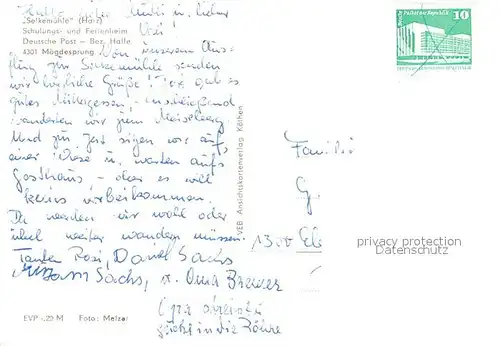 Hallo liebe Mutti u. lieber
Vati!
"Selkemühle" (Harz)
Schulungs- und Ferienheim
Deutsche Post - Bez. Halle
4301 Mägdesprung
Von unserem Aus-
flug zur Selkemühle senden
wir herzliche Grüße! gab es
gutes Mittagessen, anschließend
wanderten wir zum Meiseberg.
Und zur Zeit sitzen wir auf
einer Wiese u. warten aufs
Gasthaus, - aber es will
keins vorbeikommen.
Da werden wir wohl oder
übel weiter wandern müssen.
Tanten Rosi, Daniel Sachs
Sachs, u. Oma Brewer
Opa
guckt in die Röhre
EVP -,20 M Foto: Melzer
VEB Ansichtskartenverlag Köthen
Palast der Republik
10
Familie
G.
1300 Eb
privacy protection
Datenschutz